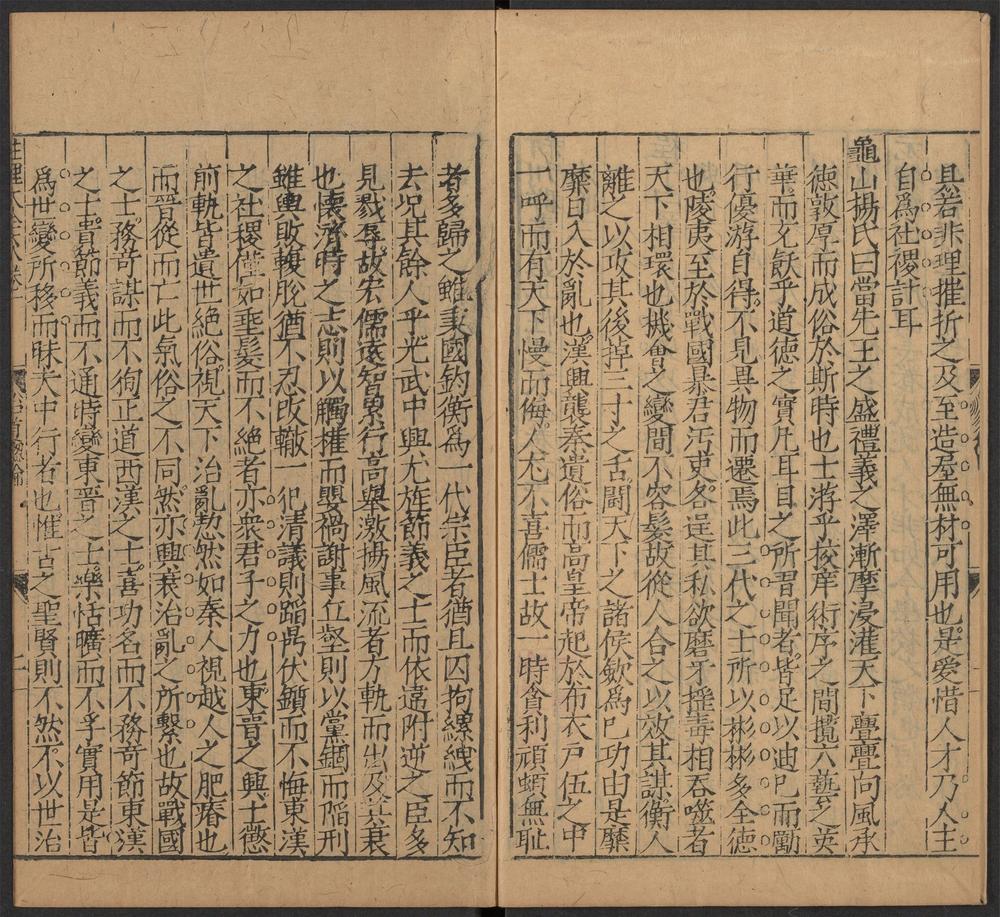 且若非理摧折之及至造屋無材可用也是愛惜人才乃人主
自爲社稷計耳
龜山楊氏曰當先王之盛禮義之澤漸摩浸灌天下亹亹向風承
德敦厚而成俗於斯時也士游乎校庠術序之間攬六藝之英
華而文飫乎道德之實凡耳目之所謂聞者皆足以迪已而勵
行優游自得不見異物而遷焉此三代之士所以彬彬多全德
也陵夷至於戰國暴君汙吏各逞其私欲磨牙揺毒相吞噬者
天下相環也機會之變間不容髪故從人合之以效其謀衡人
離之以攻其後掉三寸之舌鬭天下之諸侯歛爲已功由是靡
靡日入於亂也漢興襲秦遺俗而高皇帝起於布衣戸伍之中
一呼而有天下慢而侮人尤不喜儒士故一時貪利頑頓無耻
者多歸之雖秉國鈞衡爲一代宗臣者猶且囚拘縲絏而不知
去況其餘人乎光武中興尤旌節義之士而依違附逆之臣多
見戮辱故宏儒遠智累行高舉激揚風流者方軌而出及其衰
也懷濟時之志則以觸權而嬰禍謝事丘壑則以黨錮而陷刑
雖輿敗輹脫猶不忍改轍一犯清議則蹈鼎伏鑕而不悔東漢
之社稷僅如垂髪而不絕者亦衆君子之力也東晉之興士懲
前軌皆遺世絕俗視天下治亂恝然如秦人視越人之肥瘠也
而晉從而亡此氣俗之不同然亦興衰治亂之所繫也故戰國
之士務奇謀而不徇正道西漢之士喜功名而不務奇節東漢
之士貴節義而不通時變東晉之士樂恬曠而不孚實用是皆
爲世變所移而昧大中行者也惟古之聖賢則不然不以世治